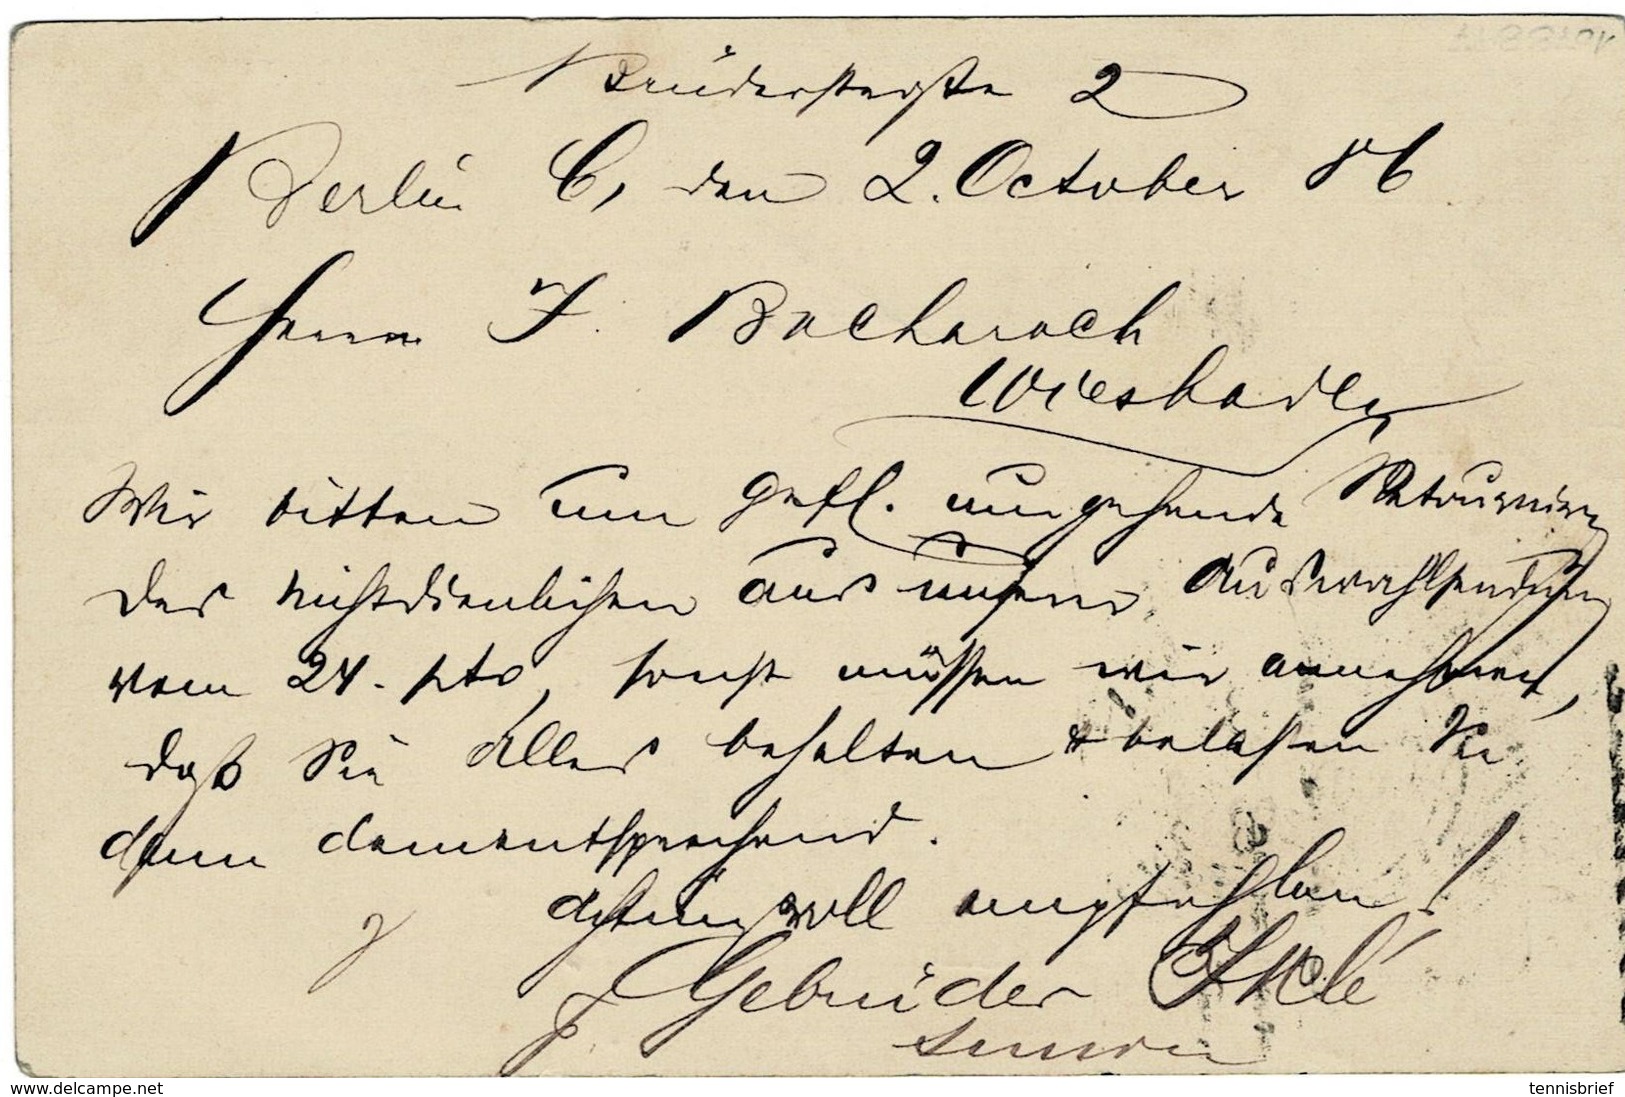 Brüderstraße 2
Berlin C, den 2. October 86
Herrn J. Bacharach
Wiesbaden
Wir bitten um gefl. umgehende Retournirung
des nichtdienlichen aus unserer Auswahlsendung
vom 24. pto, sonst müssen wir annehmen,
daß Sie Alles behalten & belasten Sie
dann dementsprechend.
Achtungsvoll empfohlen!
Gebrüder Iklé
Simon
delcampe.net
tennisbrief